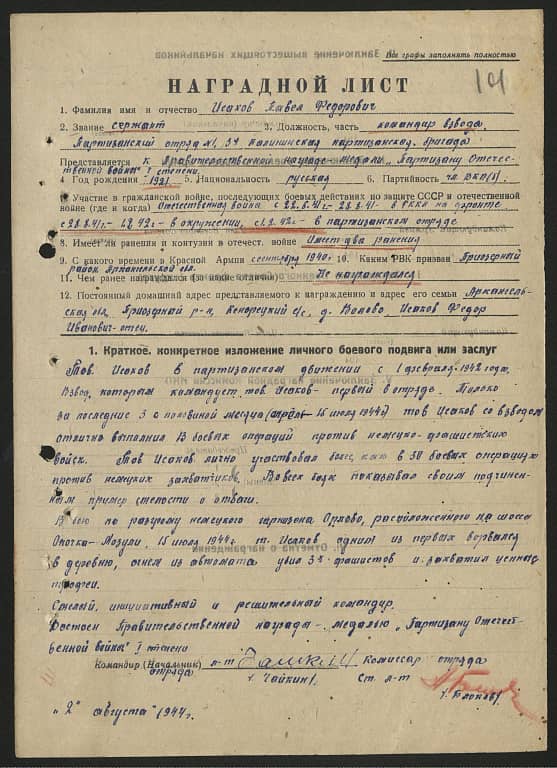 Все графы заполнять полностью
191
НАГРАДНОЙ ЛИСТ
1. Фамилия имя и отчество Исаков Павел Федорович
2. Звание сержант 3. Должность, часть командир взвода,
Партизанский отряд №1, 3й Калининская партизанская бригада
Представляется к Правительственной награде медали „Партизану Отечес-
твенной войны" I степени.
4. Год рождения 1921 5. Национальность русская 6. Партийность чл. ВКП(б)
7. Участие в гражданской войне, последующих боевых действиях по защите СССР и отечественной
войне (где и когда) Отечественная война с 22.6.41г. - 28.8.41 - в РККА на фронте
с 28.8.41г. - 1.2.42г. - в окружении, с 1.2.42г. - в партизанском отряде
8. Имеет ли ранения и контузии в отечест. войне Имеет два ранения
9. С какого времени в Красной Армии сентябрь 1940г. 10. Каким РВК призван Приозерный
район Архангельской обл.
11. Чем ранее награжден (за какие отличия) Не награждался
12. Постоянный домашний адрес представляемого к награждению и адрес его семьи Архангель-
ская обл., Приозерный р-н, Кенорецкий с/с, д. Волово. Исаков Федор
Иванович - отец.
1. Краткое, конкретное изложение личного боевого подвига или заслуг
Тов. Исаков в партизанском движении с 1 февраля 1942 года.
Взвод, которым командует тов. Исаков - первый в отряде. Только
за последние 3 с половиной месяца (апрель - 15 июля 1944г) тов. Исаков со взводом
отлично выполнил 13 боевых операций против немецко-фашистских
войск. Тов Исаков лично участвовал более, как в 30 боевых операциях
против немецких захватчиков. Во всех боях показывал своим подчинен-
ным пример смелости и отваги.
В бою по разгрому немецкого гарнизона Орлово, расположенного на шоссе
Опочка - Мозули, 15 июля 1944г. т. Исаков одним из первых ворвался
в деревню, огнем из автомата убил 3х фашистов и захватил ценные
трофеи.
Смелый, инициативный и решительный командир.
Достоин Правительственной награды - медалью „Партизану Отечест-
венной войны" I степени
Командир (Начальник) л-т Комиссар отряда
отряда /Чайкин/. Ст. л-т
"2" августа 1944г.